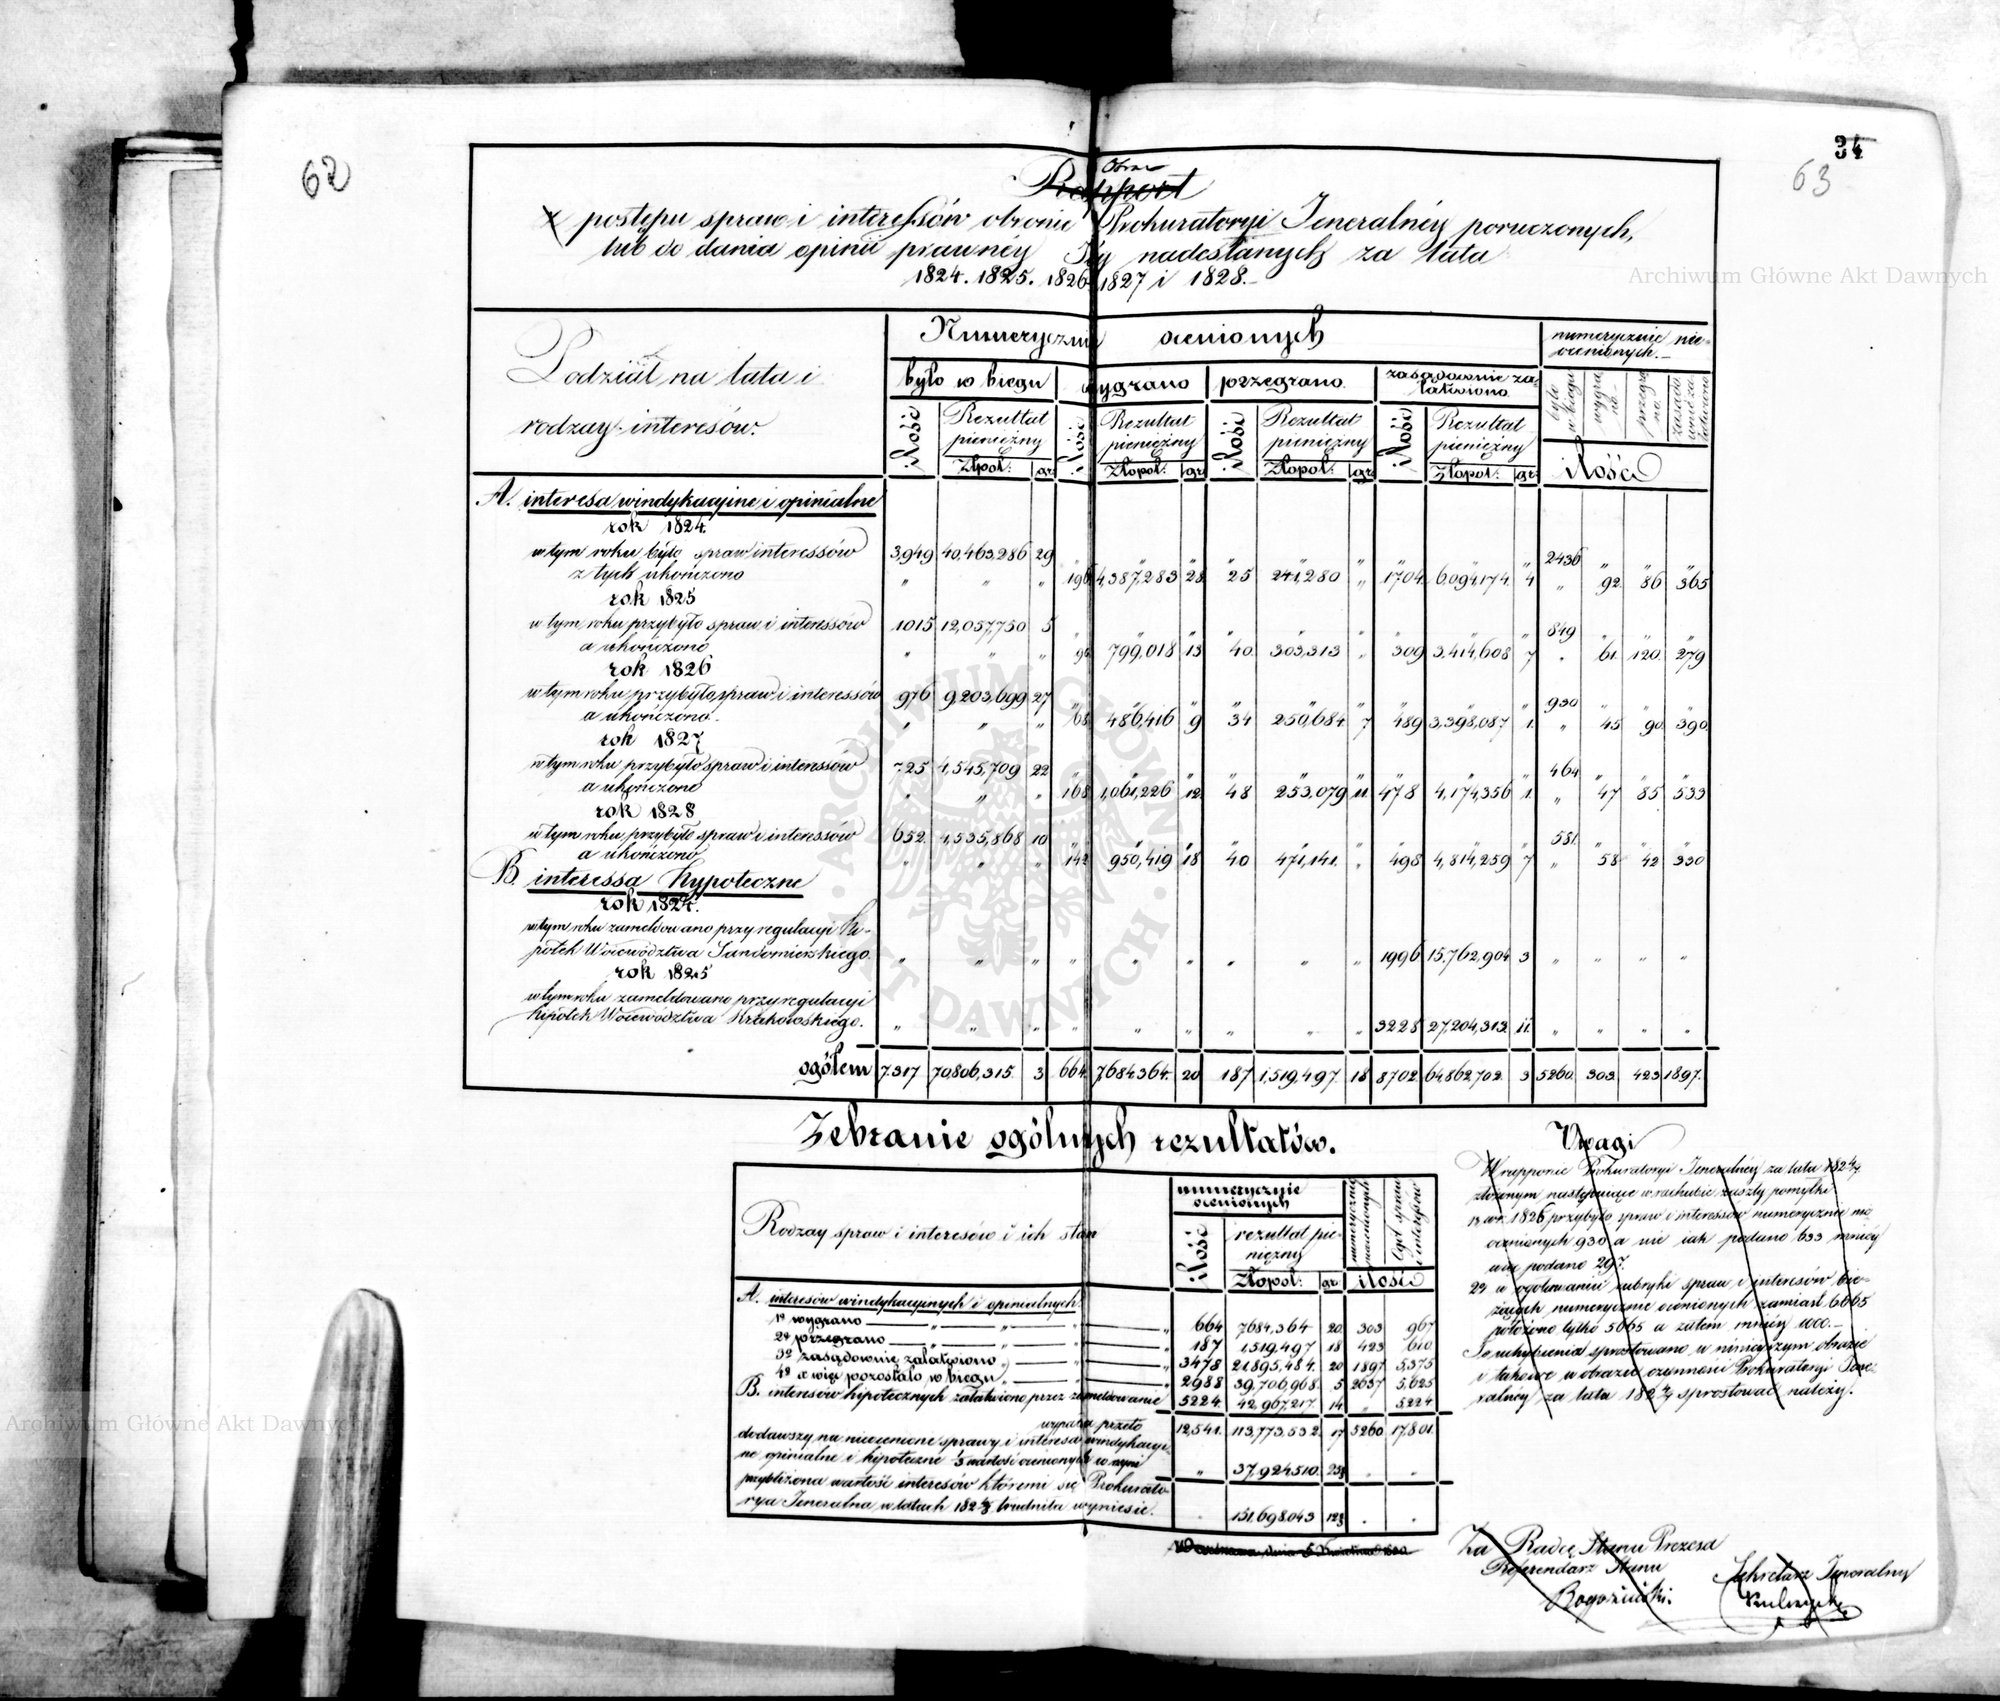 62
34
63
Obraz
Rapport
z postępu spraw i interessów obronie Prokuratoryi Jeneralnéy poruczonych,
lub do dania opinii prawnéy Jéy nadesłanych za lata
1824. 1825. 1826. 1827 i 1828.
Archiwum Główne Akt Dawnych
Podział na lata i
rodzay interesów.
Numerycznie ocenionych
numerycznie nie-
ocenionych.
było w biegu wygrano przegrano zasądownie za-
łatwiono
było w biegu wygrano przegrano zasądownie załatwiono
Ilość Rezultat pieniężny Złpol: gr: Ilość Rezultat pieniężny Złopol: gr: Ilość Rezultat pieniężny Złopol: gr: Ilość Rezultat pieniężny Złopol: gr: ilość
A. interesa windykacyine i opinialne
rok 1824.
w tym roku było spraw interessów 3,949 40,463,286 29 " " " " " " " " " 2436 " " "
z tych ukończono " " " 196 4,387,283 28 25 241,280 " 1704 6,094,174 4 " 92 86 365
rok 1825
w tym roku przybyło spraw i interessów 1015 12,057,750 5 " " " " " " " " " 849 " " "
a ukończono " " " 90 799,018 13 40 303,313 " 309 3,414,608 7 " 61 120 279
rok 1826
w tym roku przybyło spraw i interessów 976 9,203,699 27 " " " " " " " " " 930 " " "
a ukończono " " " 68 486,416 9 34 250,684 7 489 3,398,087 1 " 45 90 390
rok 1827
w tym roku przybyło spraw i interessów 725 4,545,709 22 " " " " " " " " " 464 " " "
a ukończono " " " 168 1,061,226 12 48 253,079 11 478 4,174,356 1 " 47 85 533
rok 1828
w tym roku przybyło spraw i interessów 652 4,535,868 10 " " " " " " " " " 581 " " "
a ukończono " " " 142 950,419 18 40 471,141 " 498 4,814,259 7 " 58 42 330
B. interessa hypoteczne
rok 1824.
w tym roku zameldowano przy regulacyi hi-
potek Woiewództwa Sandomierskiego. " " " " " " " " " 1996 15,762,904 3 " " " "
rok 1825
w tym roku zameldowano przy regulacyi
hipotek Woiewództwa Krakowskiego. " " " " " " " " " 3228 27,204,313 11 " " " "
ogółem 7317 70,806,315 3 664 7,684,364 20 187 1,519,497 18 8702 64,862,702 3 5260 303 423 1897
Zebranie ogólnych rezultatów.
Rodzay spraw i interesów i ich stan
numerycznie
ocenionych
numerycznie nieocenionych
Ogół spraw i interesów
Ilość rezultat pie-
niężny
Złopol: gr: ilość
A. interesów windykacyjnych i opinialnych
1º wygrano " " " " 664 7684,364 20 303 967
2º przegrano " " " " 187 1,519,497 18 423 610
3º zasądownie załatwiono " " " 3478 21,895,484 20 1897 5,375
4º a więc pozostało w biegu " " " 2988 39,706,968 5 2637 5,625
B. interesów hipotecznych załatwiono przez zameldowanie 5224 42,967,217 14 " 5224
wypada przeto 12,541 113,773,532 17 5260 17,801
dodawszy na nieocenione sprawy i interesa windykacyi-
ne opinialne i hipoteczne ⅓ wartości ocenionych w nayni " 37,924,510 25⅔ " "
przybliżona wartość interesów któremi się Prokurato-
rya Jeneralna w latach 182 4/8 trudniła wyniesie. " 151,698,043 12⅔ " "
Warszawa, dnia 5 Kwietnia 1830
Uwagi
W rapporcie Prokuratoryi Jeneralnéy za lata 182 4/7
złożonym następujące w rachubie zaszły pomyłki
1º w r. 1826 przybyło spraw i interessów numerycznie nie
ocenionych 930 a nie iak podano 633 mniéy
więc podano 297.
2º w ogólnieniu rubryki spraw i interesów bie-
żących numerycznie ocenionych zamiast 6665
położono tylko 5665 a zatem mniéy 1000.
Te uchybienia sprostowano w ninieyszym obrazie
i takowe w obrazie czynności Prokuratoryi Jene-
ralnéy za lata 182 4/7 sprostować należy.
Za Radcę Stanu Prezesa
Referendarz Stanu
Sekretarz Jeneralny
Archiwum Główne Akt Dawnych
ARCHIWUM GŁÓWNE AKT DAWNYCH